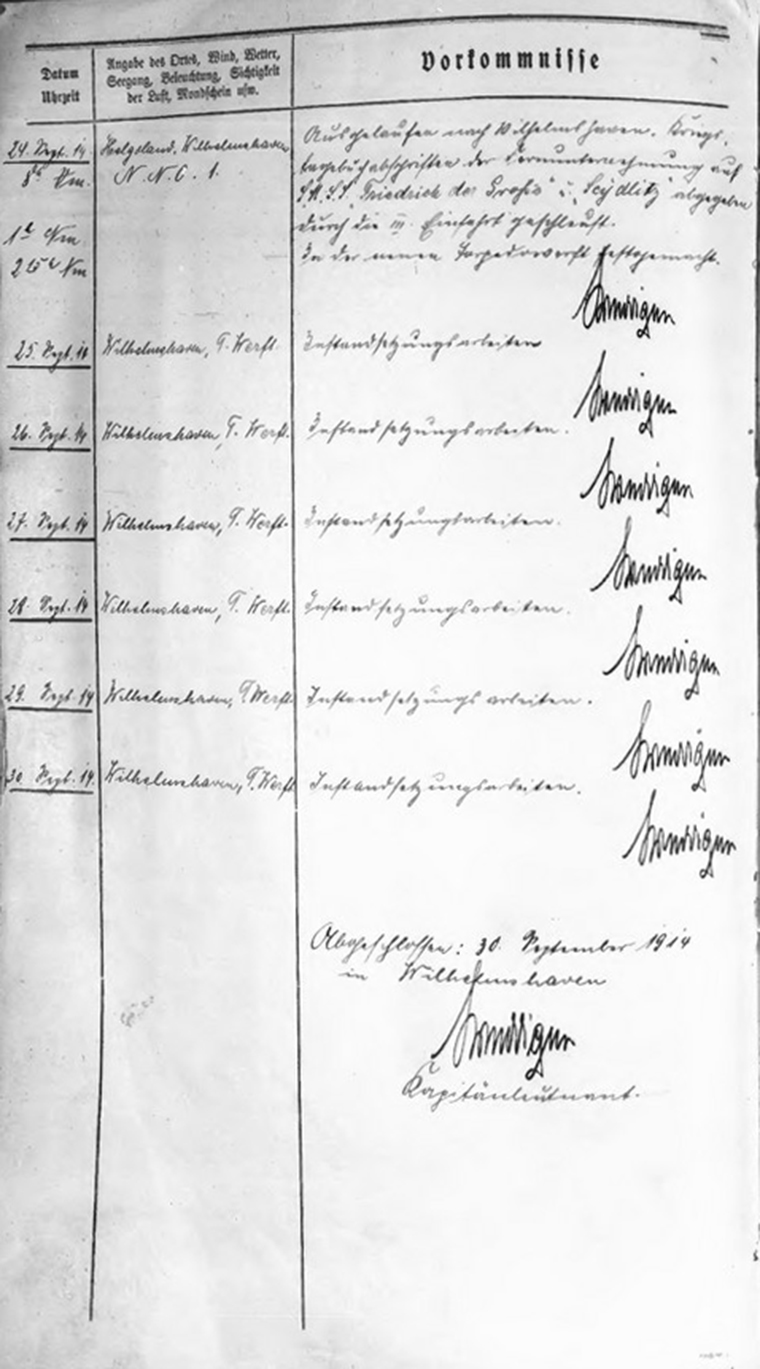 Datum
Uhrzeit
Angabe des Ortes, Wind, Wetter,
Seegang, Beleuchtung, Sichtigkeit
der Luft, Mondschein usw.
Vorkommnisse
24. Sept. 14
Helgoland. Wilhelmshaven
N.N.O. 1.
Ausgelaufen nach Wilhelmshaven. Kriegs-
tagebuchabschriften der Fernunternehmung auf
S.M.S.S. "Friedrich der Große" u. "Seydlitz" abgegeben
durch die III. Einfahrt geschleust.
In der neuen Torpedowerft festgemacht.
Weddigen
25. Sept. 14
Wilhelmshaven, T. Werft.
Instandsetzungsarbeiten
Weddigen
26. Sept. 14
Wilhelmshaven, T. Werft.
Instandsetzungsarbeiten.
Weddigen
27. Sept. 14
Wilhelmshaven, T. Werft.
Instandsetzungsarbeiten.
Weddigen
28. Sept. 14
Wilhelmshaven, T. Werft.
Instandsetzungsarbeiten.
Weddigen
29. Sept. 14
Wilhelmshaven, T. Werft
Instandsetzungsarbeiten.
Weddigen
30. Sept. 14.
Wilhelmshaven, T. Werft
Instandsetzungsarbeiten.
Weddigen
Abgeschlossen: 30. September 1914
in Wilhelmshaven
Weddigen
Kapitänleutnant.